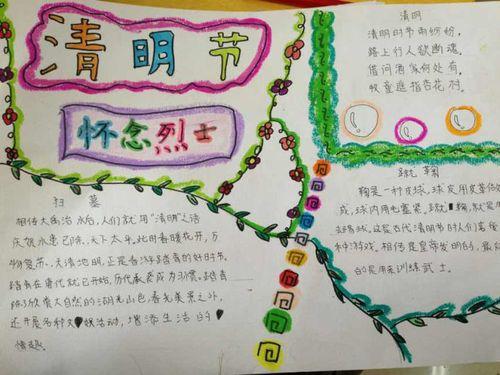 清明节
怀念烈士
扫墓
相传大禹治水后,人们就用“清明”之语
庆祝水患已除,天下太平。此时春暖花开,万
物复苏,天清地明,正是春游踏青的好时节。
踏青在唐代就已开始,历代承袭成为习惯。踏青
除了欣赏大自然的湖光山色、春光美景之外,
还开展各种文娱活动,增添生活的
情趣。
清明
清明时节雨纷纷,
路上行人欲断魂。
借问酒家何处有,
牧童遥指杏花村。
蹴鞠
鞠是一种皮球,球皮用皮革做
成,球内用毛塞紧。蹴鞠,就是用
足去踢球。这是古代清明节时人们喜爱
一种游戏。相传是黄帝发明的,最初
的是用来训练武士。